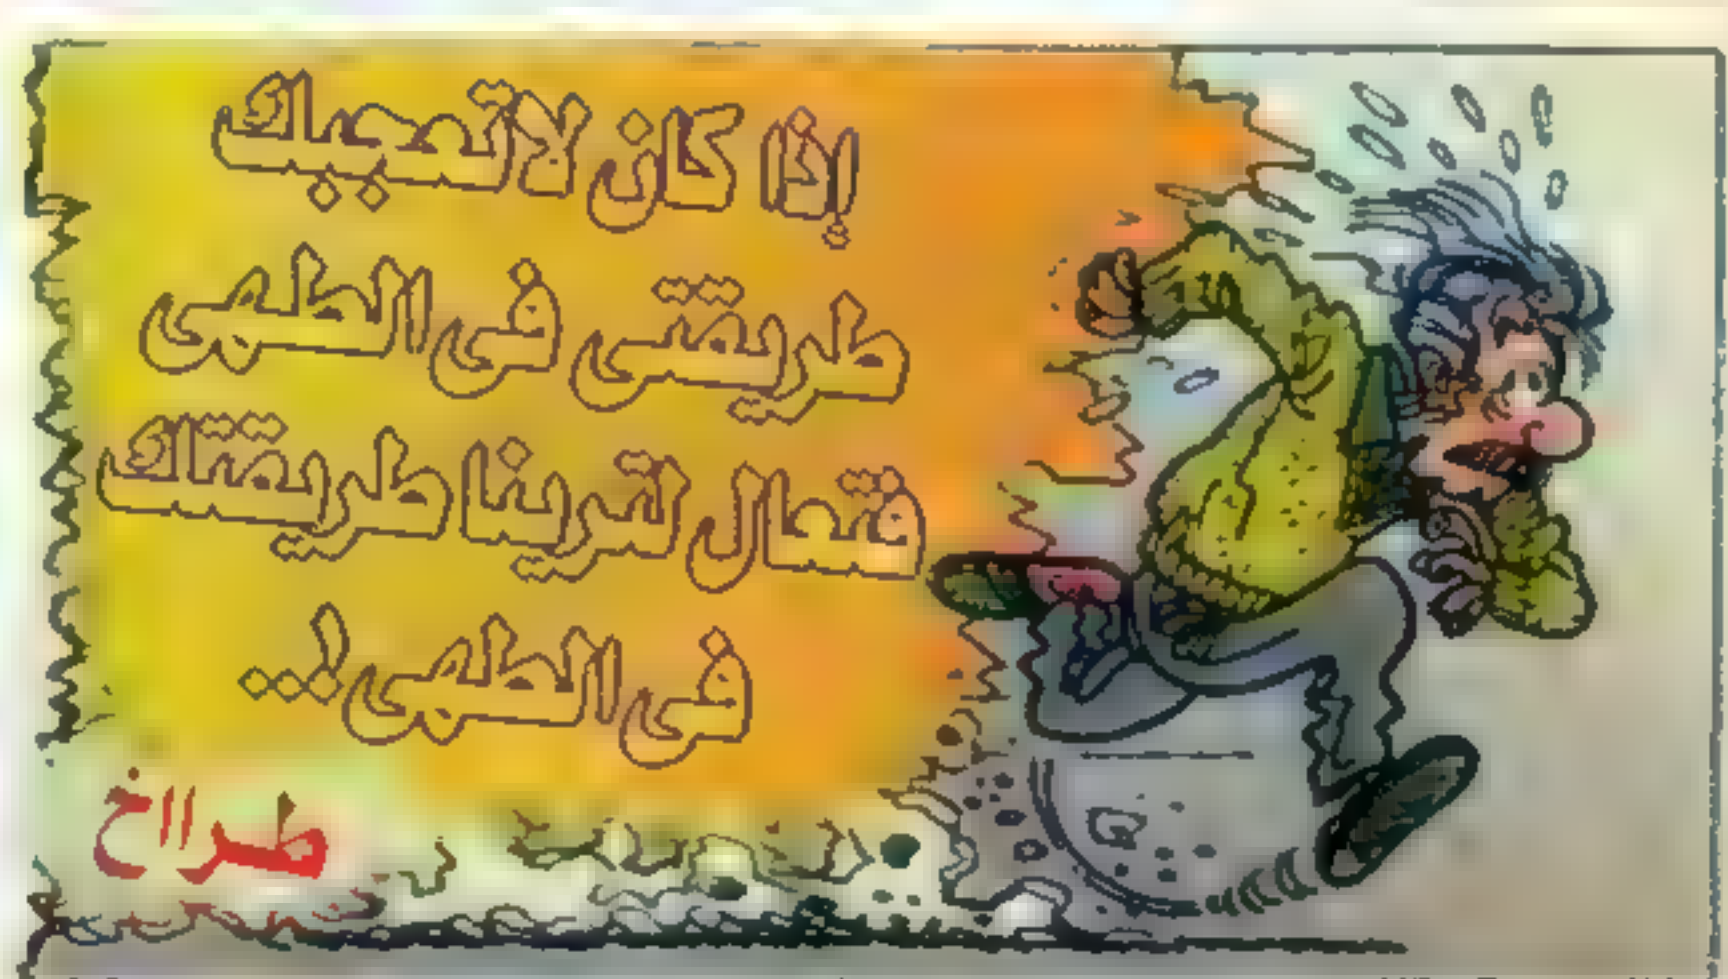 إذا كان لا تعجبك
طريقتى فى الطهى
فتعال لترينا طريقتك
فى الطهى!...
طرااخ